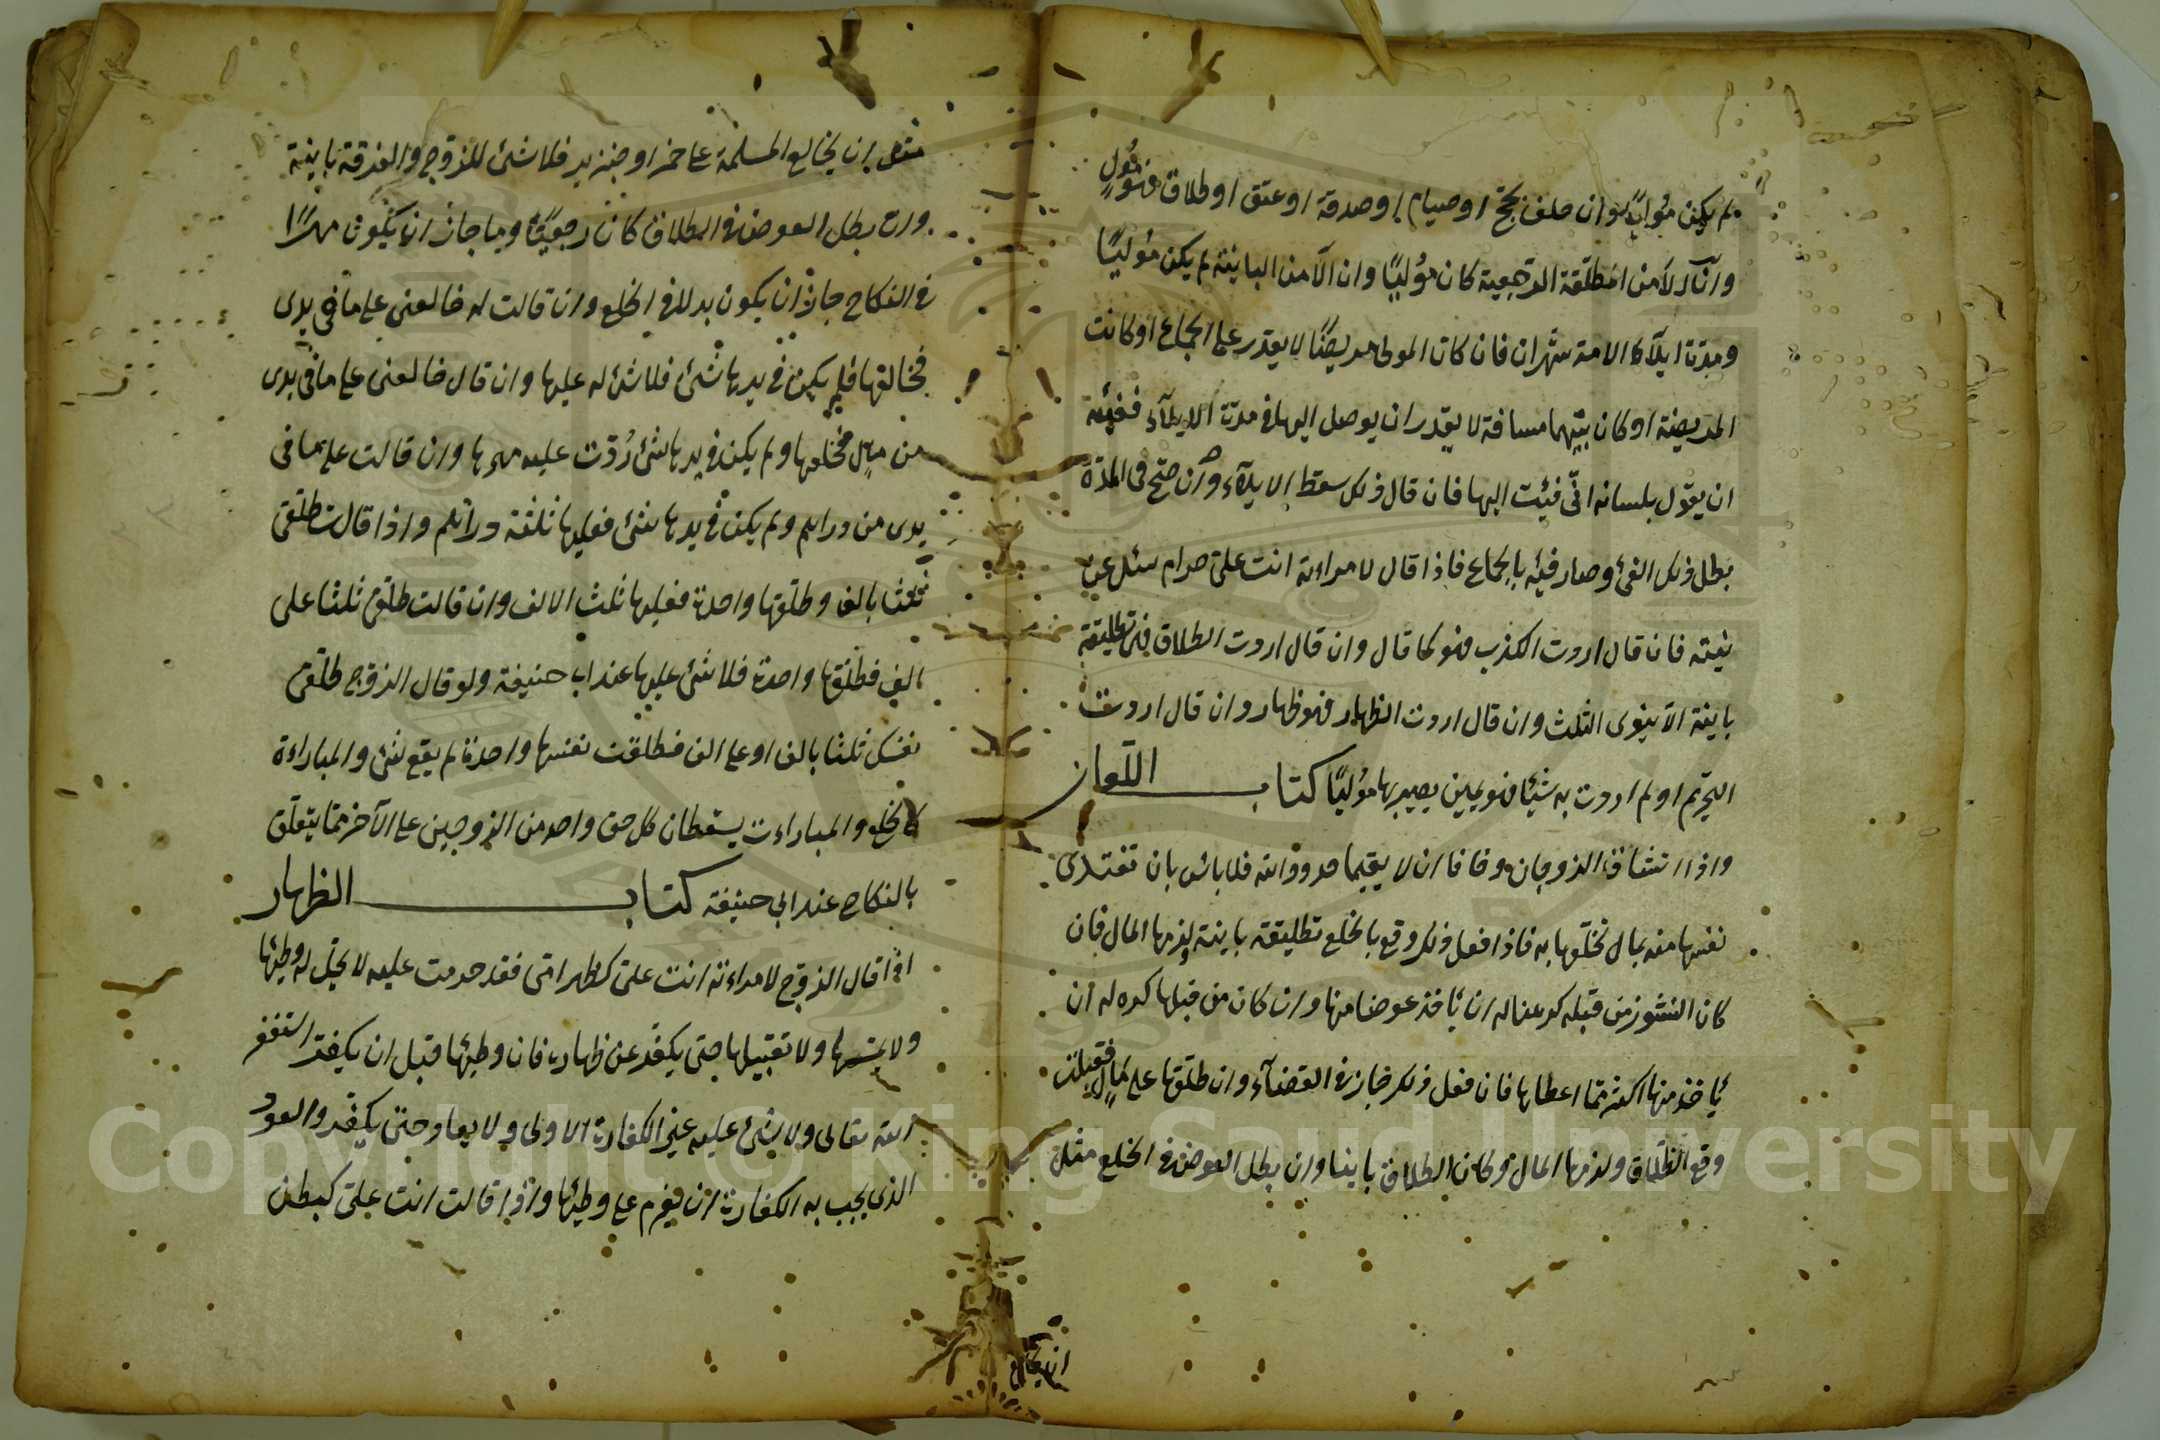 لم يكن مؤليًا وان حلف بحج او صيام او صدقة او عتق او طلاق فهو مُولٍ
وان آلا من المطلّقة الرّجعية كان مؤليًا وان آلا من الباينة لم يكن مؤليًا
ومدّة ايلآء الامة شهران فان كان المولى مريضًا لا يقدر على الجماع او كانت
المريضة او كان بينهما مسافة لا يقدر ان يوصل اليها فى مدّة الايلآء ففيئه
ان يقول بلسانه انّى فيئت اليها فان قال ذلك سقط الايلآء وان صح فى المدّة
بطل ذلك الفئ وصار فيئه بالجماع فاذا قال لامراءته انت علىّ حرام سئل عن
نيته فان قال اردت الكذب فهو كما قال وان قال اردت الطلاق فهى تطليقة
باينة الا ينوى الثلث وان قال اردت الظهار فهو ظهار وان قال اردت
التحريم او لم اردت به شيئا فهو يمين يصير بها مؤليًا كتاب
واذا تشاق الزوجان وخافا ان لا يقيما حدود الله فلا باس بان تفتدى
نفسها منه بمال يخلعها به فاذا فعل ذلك وقع بالخلع تطليقة باينة ولزمها المال فان
كان النشوز من قبله كرهنا له ان ياخذ عوضا منها وان كان من قبلها كره له ان
ياخذ منها اكثر مما اعطاها فان فعل ذلك جاز فى القضآء وان طلقها على مال فقبلت
وقع الطلاق ولزمها المال وكان الطلاق باينا وان بطل العوض فى الخلع مثل
ان يخالع
مثل ان يخالع المسلمة على خمر او خنزير فلا شئ للزوج والفرقة باينة
وان بطل العوض فى الطلاق كان رجعيًا وما جاز ان يكون مهرًا
فى النكاح جاز ان يكون بدلا فى الخلع وان قالت له خالعنى على ما فى يدى
فخالعها فلم يكن فى يدها شئ فلا شئ له عليها وان قال خالعنى على ما فى يدى
من مال فخلعها ولم يكن فى يدها شئ رُدّت عليه مهرها وان قالت على ما فى
يدى من دراهم ولم يكن فى يدها شئ فعليها ثلثة دراهم واذا قالت طلقنى
ثلثا بالف وطلقها واحدة فعليها ثلث الالف وان قالت طلقنى ثلثا على
الف فطلقها واحدة فلا شئ عليها عند ابى حنيفة ولو قال الزوج طلّقى
نفسك ثلثا بالف او على الف فطلقت نفسها واحدة لم يقع شئ والمباراءة
كالخلع والمباراءت يسقطان كل حق واحد من الزوجين على الآخر مما يتعلّق
بالنكاح عند ابى حنيفة كتاب الظهار
اذا قال الزوج لامراءته انت علىّ كظهر امّى فقد حرمت عليه لا يحل له وطيها
ولا مسها ولا تقبيلها حتى يكفّر عن ظهاره فان وطيها قبل ان يكفّر استغفر
الله تعالى ولا شئ عليه غير الكفارة الاولى ولا يعاود حتى يكفّر والعود
الذى يجب به الكفارة ان يعزم على وطيها واذا قالت انت علىّ كبطن